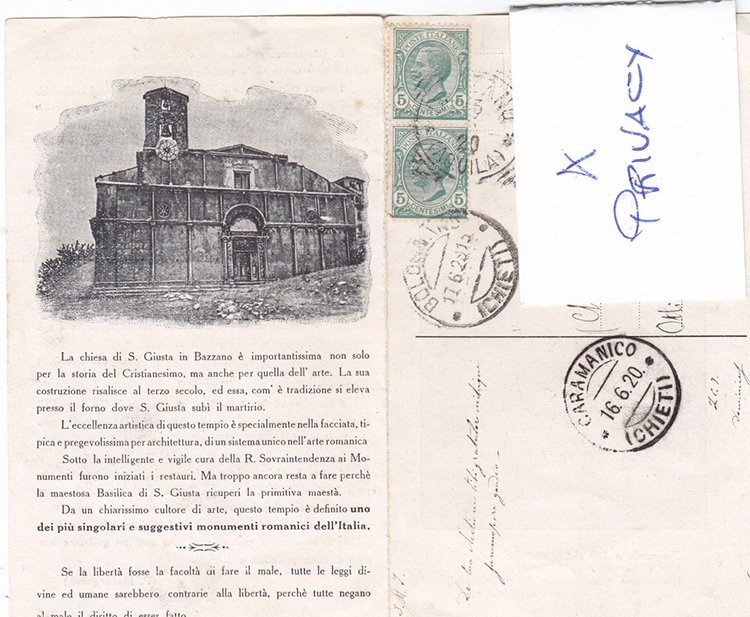 La chiesa di S. Giusta in Bazzano è importantissima non solo
per la storia del Cristianesimo, ma anche per quella dell' arte. La sua
costruzione risalisce al terzo secolo, ed essa, com' è tradizione si eleva
presso il forno dove S. Giusta subì il martirio.
L'eccellenza artistica di questo tempio è specialmente nella facciata, ti-
pica e pregevolissima per architettura, di un sistema unico nell'arte romanica
Sotto la intelligente e vigile cura della R. Sovraintendenza ai Mo-
numenti furono iniziati i restauri. Ma troppo ancora resta a fare perchè
la maestosa Basilica di S. Giusta ricuperi la primitiva maestà.
Da un chiarissimo cultore di arte, questo tempio è definito uno
dei più singolari e suggestivi monumenti romanici dell'Italia.
Se la libertà fosse la facoltà di fare il male, tutte le leggi di-
vine ed umane sarebbero contrarie alla libertà, perchè tutte negano
al male il diritto di esser fatto.
POSTE ITALIANE
5 5
CENTESIMI
POSTE ITALIANE
5 5
CENTESIMI
(AQUILA)
(CHIETI)
X
PRIVACY
CARAMANICO
16.6.20.
(CHIETI)